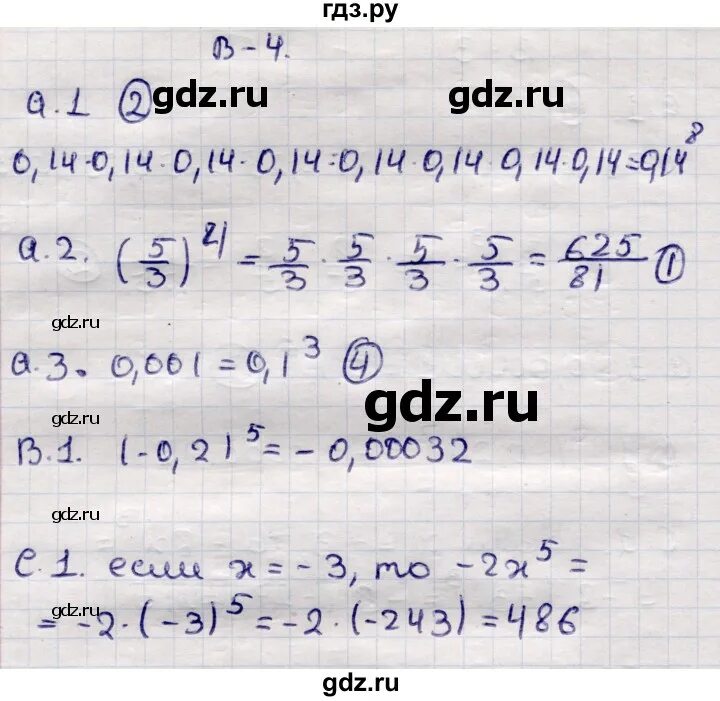 гдз.ру
В-4.
а.1 ② gdz.ru gdz.ru
0,14·0,14·0,14·0,14·0,14·0,14·0,14·0,14=0,14⁸
а.2. (5/3)⁴ = 5/3 · 5/3 · 5/3 · 5/3 = 625/81 ①
gdz.ru
а.3. 0,001 = 0,1³ ④
gdz.ru
gdz.ru
В.1. (-0,2)⁵ = -0,00032
gdz.ru
С.1. если x = -3, то -2x⁵ =
gdz.ru
= -2·(-3)⁵ = -2·(-243) = 486
gdz.ru